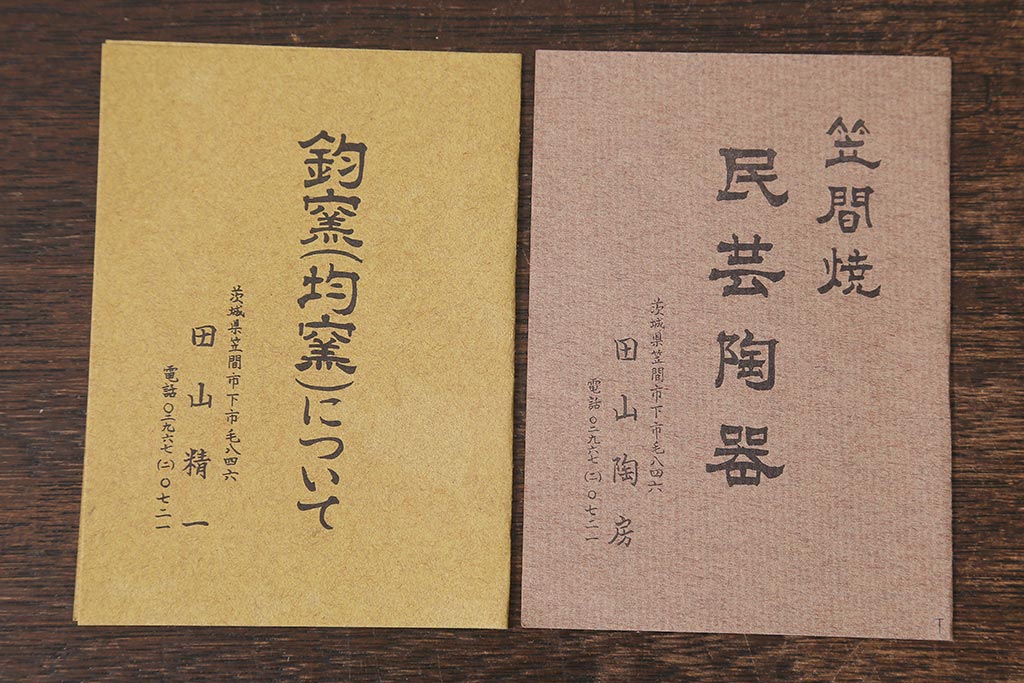 笠間焼
民芸陶器
茨城県笠間市下市毛八四六
田山陶房
電話〇二九六七(二)〇七二一
T
鈞窯(均窯)について
茨城県笠間市下市毛八四六
田山精一
電話〇二九六七(二)〇七二一